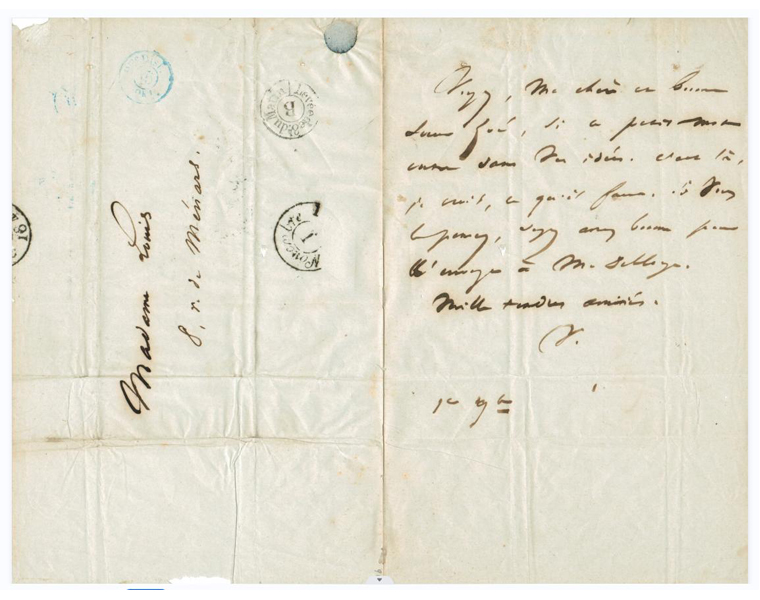 Madame Louis
8, r. de Ménars.
B
Voyez, Ma chère et bonne
soeur Zoé, si ce petit mot
entre dans vos idées. c'est là,
je crois, ce qu'il faut. si vous
le pensez, soyez assez bonne pour
l'envoyer à M. Delloye.
Mille tendres amitiés.
V.
1er 9bre